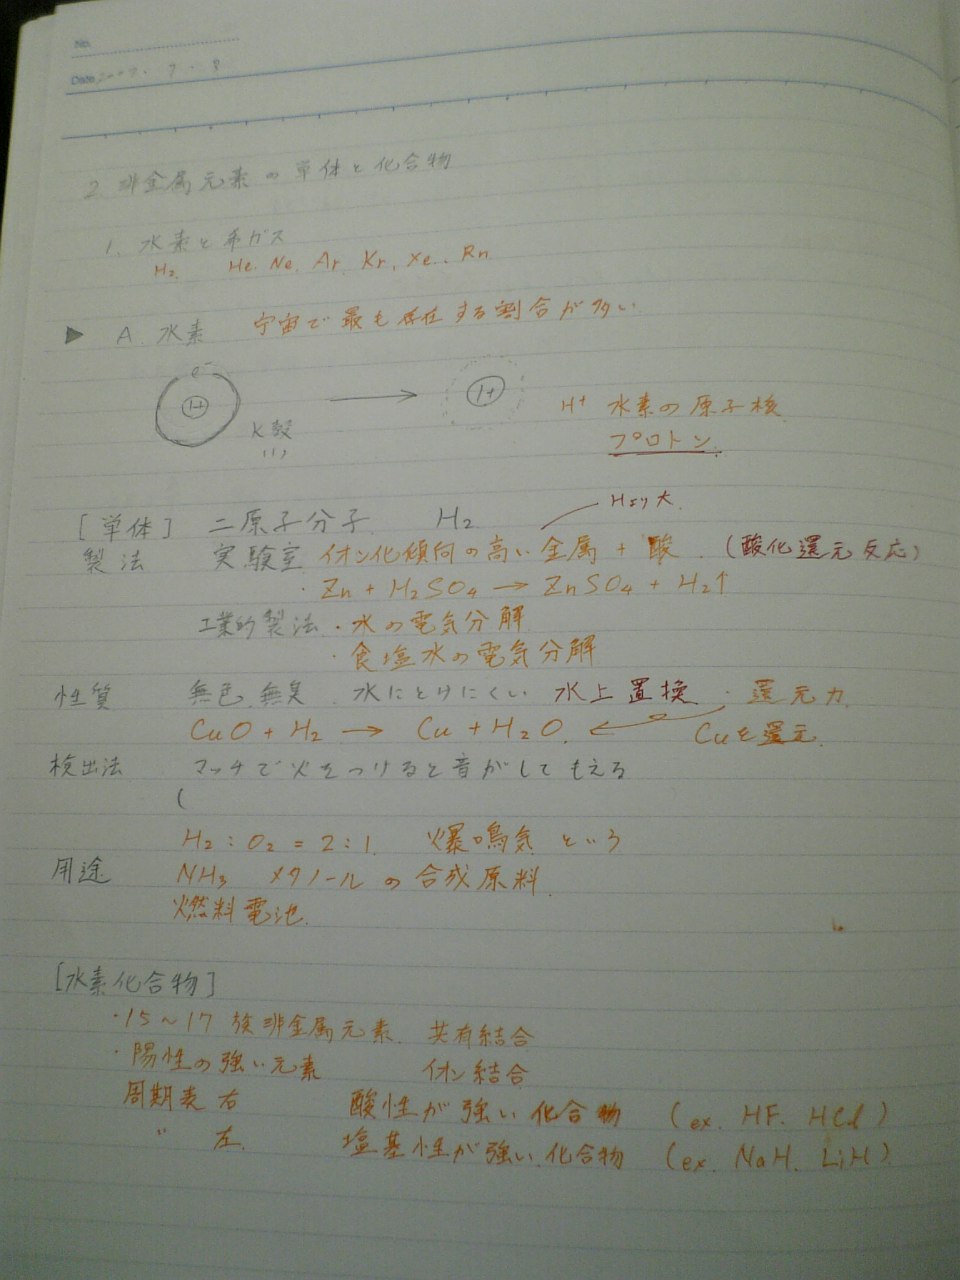 No.
Date 200 . 7 . 8
2. 非金属元素の単体と化合物
1. 水素と希ガス
H₂ He. Ne. Ar. Kr. Xe.. Rn
▶ A. 水素 宇宙で最も存在する割合が多い
e⁻
1+ → 1+
K殻
(1)
H⁺ 水素の原子核
プロトン
Hより大
[単体] 二原子分子 H₂
製法 実験室 イオン化傾向の高い金属 + 酸. (酸化還元反応)
・Zn + H₂SO₄ → ZnSO₄ + H₂↑
工業的製法 ・水の電気分解
・食塩水の電気分解
性質 無色. 無臭. 水にとけにくい 水上置換. ・還元力
CuO + H₂ → Cu + H₂O. Cuを還元
検出法 マッチで火をつけると音がしてもえる
(
H₂ : O₂ = 2 : 1. 爆鳴気 という
用途 NH₃ メタノール の合成原料.
燃料電池.
[水素化合物]
・15～17 族非金属元素. 共有結合
・陽性の強い元素 イオン結合
周期表 右 酸性が強い化合物 (ex. HF. HCl)
〃 左. 塩基性が強い.化合物 (ex. NaH. LiH)